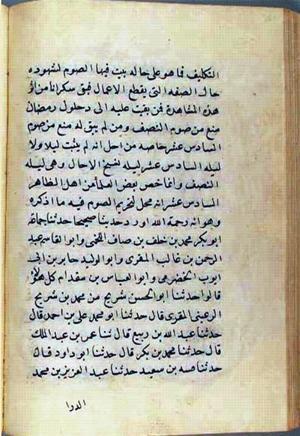 التكليف فما هو على حاله يبيت فيها الصوم لشهوده
حال الصفه التي يقطع الاعمال فبقي سكرانا من
هذه المشاهدة فمن بقيت عليه الى دخول رمضان
منع من صوم النصف ومن لم يبق له منع من صوم
السادس عشر خاصه من اجل انه لم يثبت ليلا ولا
ليلة السادس عشر ليلة نسخ الاجال وهى ليله
النصف وانما خص بعض العلماء من اهل الظاهر
السادس عشر انه محل لتحريم الصوم فيه ما اذكره
وهو انه رحمة الله اورد حديثا صحيحا حدثنا جماعة
ابو بكر محمد بن خلف بن صاف اللخمى وابو القاسم عبد
الرحمن بن غالب المقرى وابو الوليد جابر بن ابى
ايوب الحضرمى وابو العباس بن مقدام كل هؤلاء
قالوا حدثنا ابو الحسن شريح بن محمد بن شريح
الرعينى المقرى قال حدثنا ابو محمد على بن احمد قال
حدثنا عبد الله بن ربيع قال ثنا عمر بن عبد الملك
قال حدثنا محمد بن بكر قال حدثنا ابو داود قال
حدثنا قتيبه بن سعيد حدثنا عبد العزيز بن محمد
الدرا